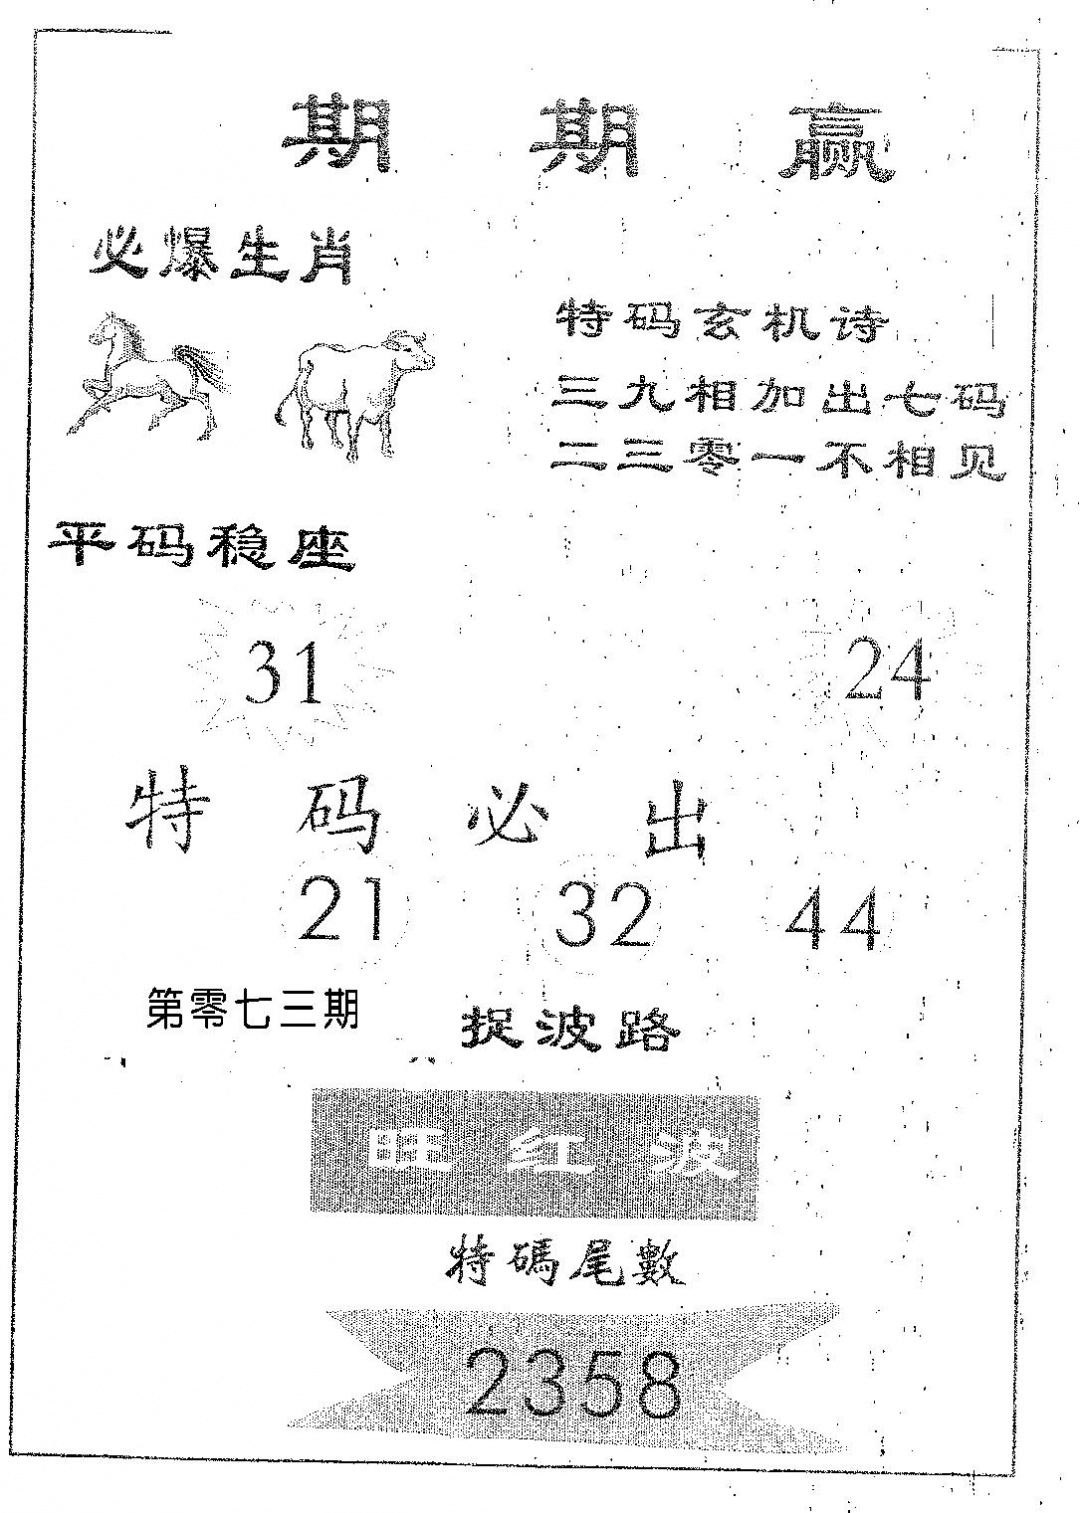 期期赢
必爆生肖
特码玄机诗
三九相加出七码
二三零一不相见
平码稳座
31
24
特码必出
21 32 44
第零七三期
捉波路
旺红波
特碼尾數
2358